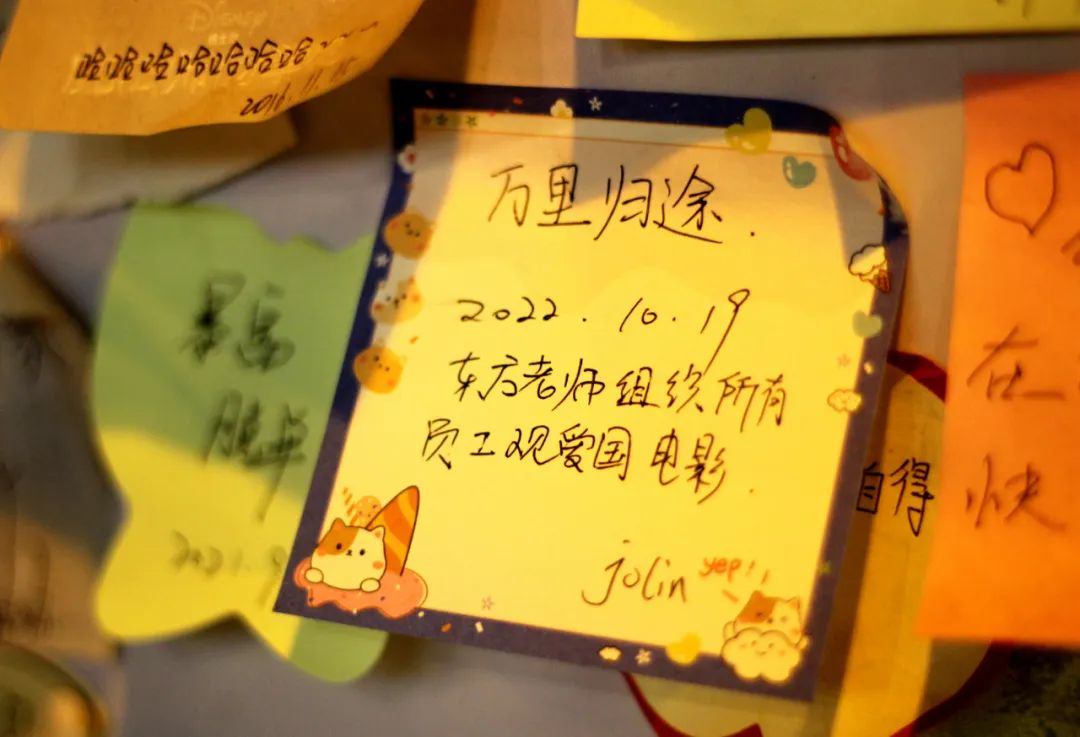 Disney
哈哈哈哈哈哈哈
2016.11.15
万里归途.
2022.10.19
东方老师组织所有
员工观爱国电影.
jolin
yep!!
自得
在
快